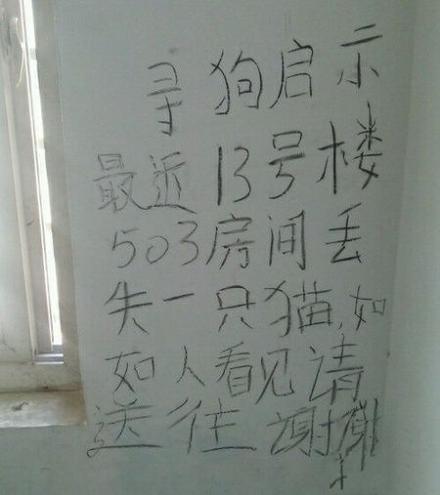 寻狗启示
最近13号楼
503房间丢
失一只猫,如
如人看见请
送往谢谢